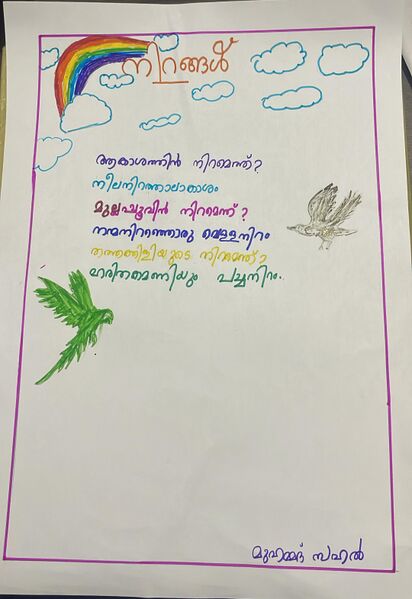 നിറങ്ങൾ
ആകാശത്തിൻ നിറമെന്ത്?
നീലനിറത്താലാകാശം
മുല്ലപ്പൂവിൻ നിറമെന്ത്?
നന്മനിറഞ്ഞൊരു വെള്ളനിറം
തത്തക്കിളിയുടെ നിറമെന്ത്?
ഹരിതകമണിയും പച്ചനിറം.
മുഹമ്മദ് സഹൽ